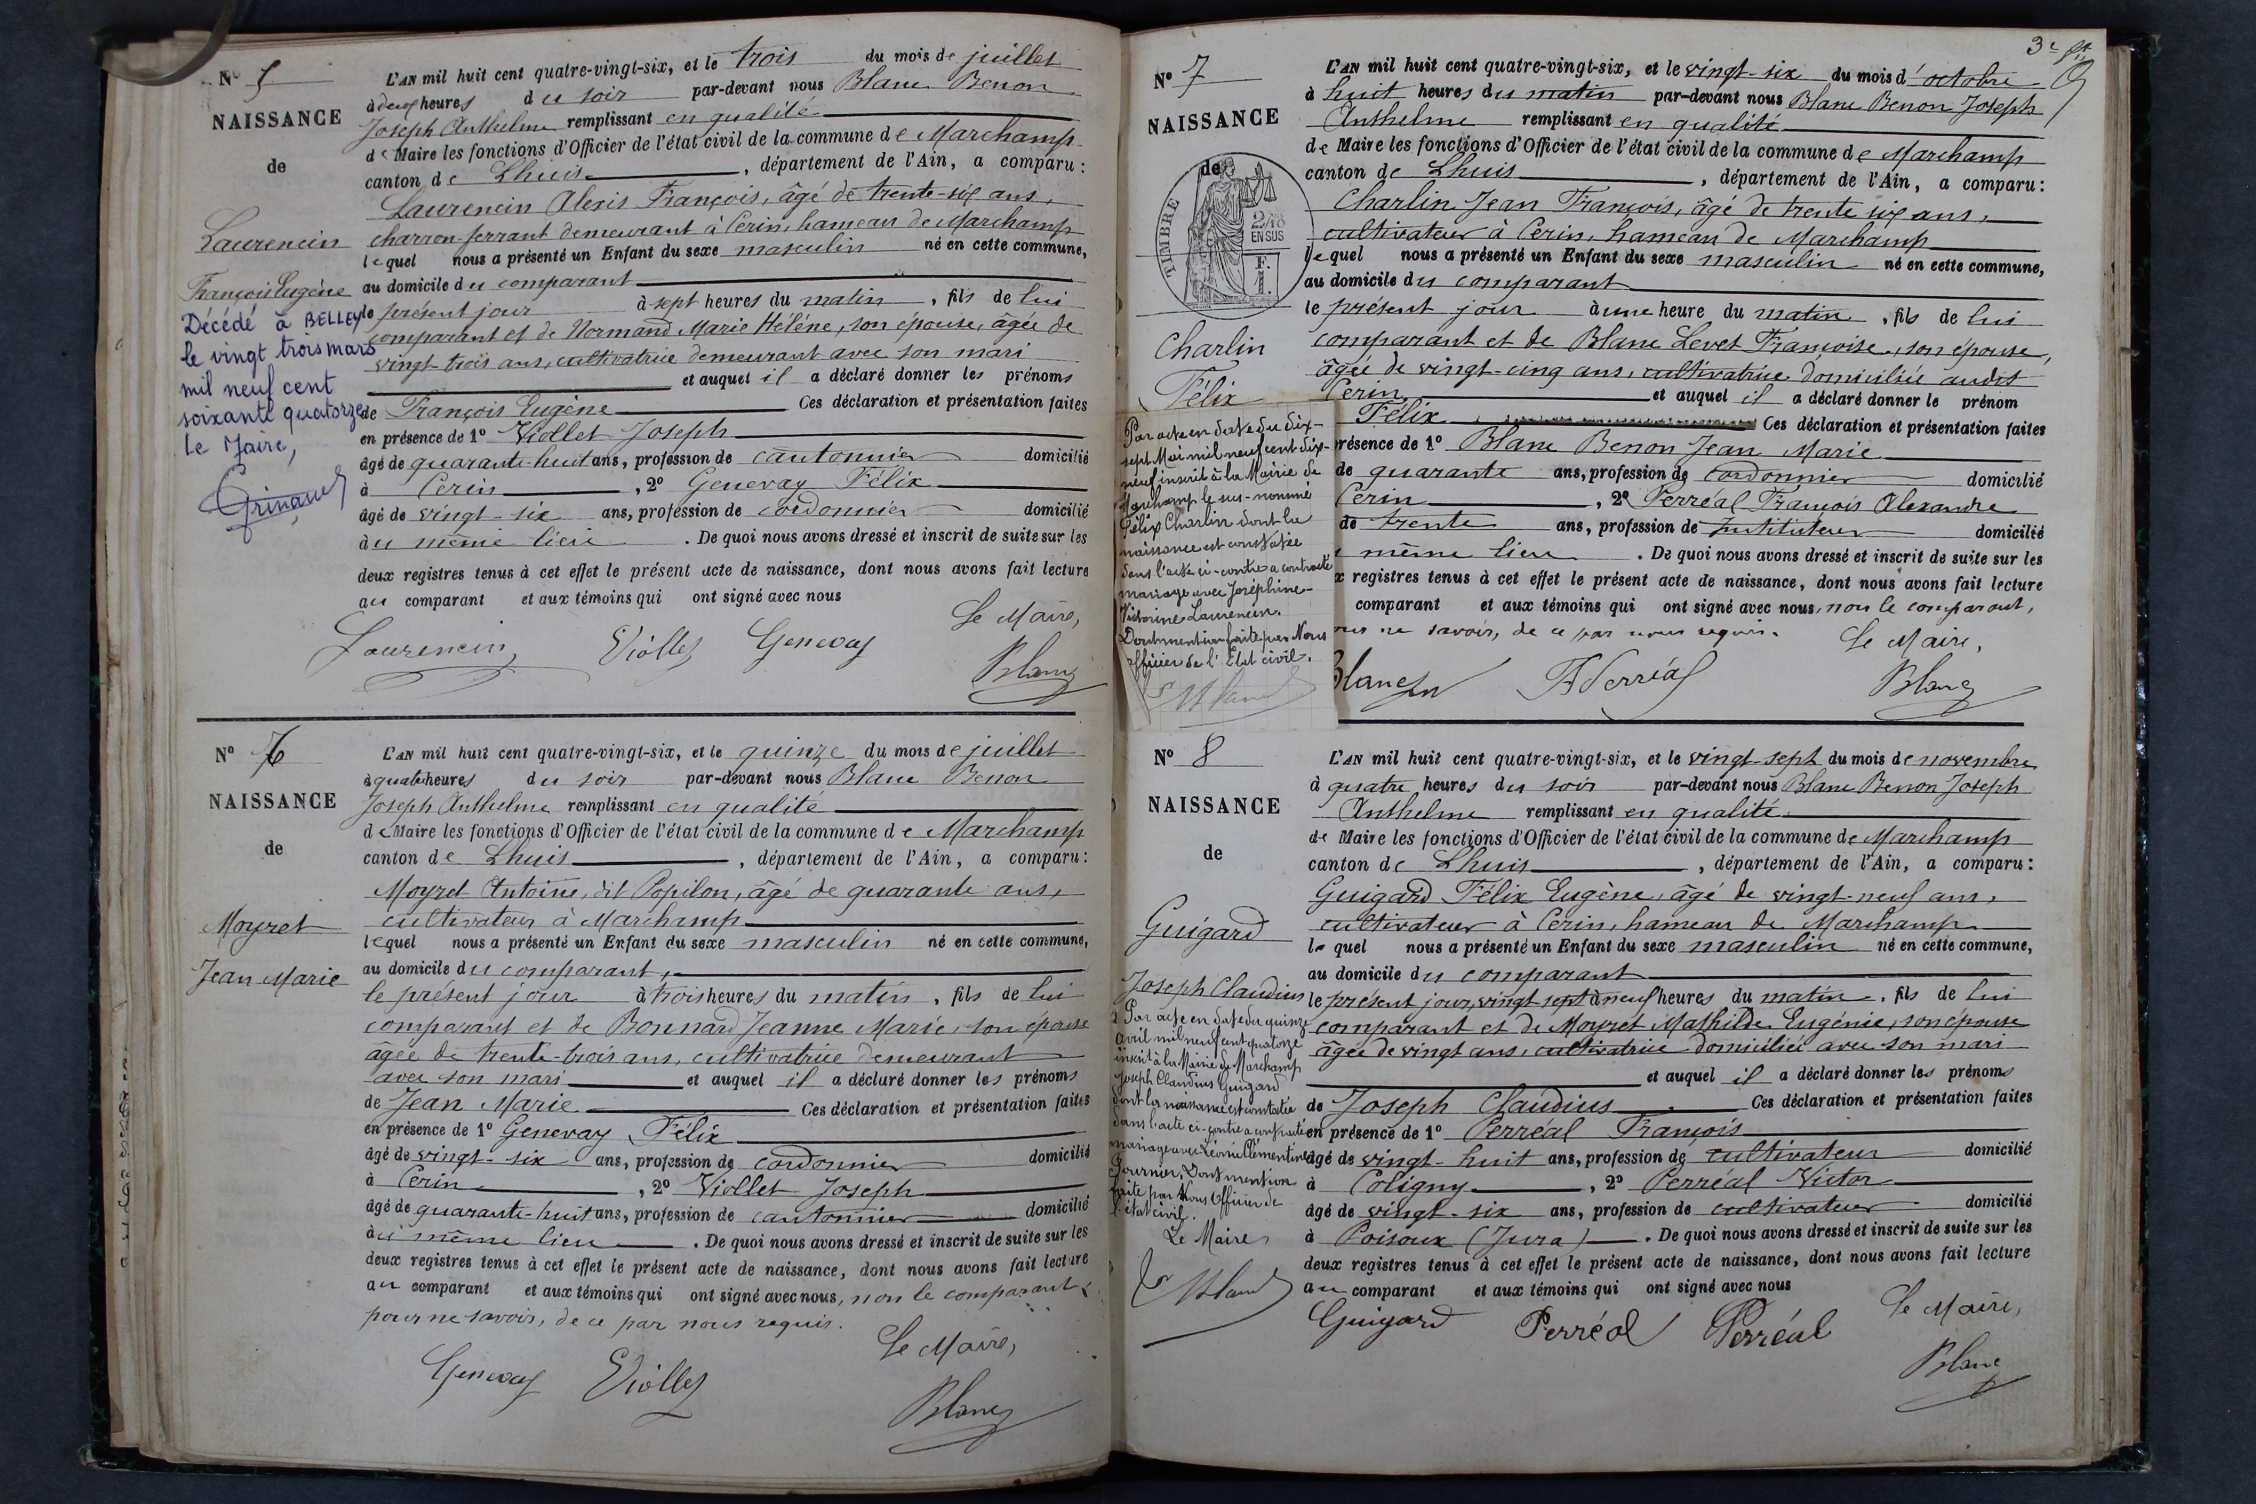 N° 5
NAISSANCE
de
Laurencin
François Eugène
Décédé à BELLEY
le vingt trois mars
mil neuf cent
soixante quatorze
Le Maire,
L'AN mil huit cent quatre-vingt-six, et le trois du mois de juillet
à deux heures du soir par-devant nous Blanc Benon
Joseph Anthelme remplissant en qualité
de Maire les fonctions d'Officier de l'état civil de la commune de Marchamp
canton de Lhuis, département de l'Ain, a comparu:
Laurencin Alexis François, âgé de trente-six ans,
charron-ferrant demeurant à Cerin, hameau de Marchamp
lequel nous a présenté un Enfant du sexe masculin né en cette commune,
au domicile du comparant
le présent jour à sept heures du matin, fils de lui
comparant et de Normand Marie Hélène, son épouse, âgée de
vingt-trois ans, cultivatrice demeurant avec son mari
et auquel il a déclaré donner les prénoms
de François Eugène Ces déclaration et présentation faites
en présence de 1° Viollet Joseph
âgé de quarante-huit ans, profession de cantonnier domicilié
à Cerin, 2° Genevay Félix
âgé de vingt-six ans, profession de cordonnier domicilié
au même lieu. De quoi nous avons dressé et inscrit de suite sur les
deux registres tenus à cet effet le présent acte de naissance, dont nous avons fait lecture
au comparant et aux témoins qui ont signé avec nous
Le Maire,
Laurencin Viollet Genevay Blanc
N° 6
NAISSANCE
de
Moyret
Jean Marie
L'AN mil huit cent quatre-vingt-six, et le quinze du mois de juillet
à quatre heures du soir par-devant nous Blanc Benon
Joseph Anthelme remplissant en qualité
de Maire les fonctions d'Officier de l'état civil de la commune de Marchamp
canton de Lhuis, département de l'Ain, a comparu:
Moyret Antoine, dit Popilon, âgé de quarante ans,
cultivateur à Marchamp
lequel nous a présenté un Enfant du sexe masculin né en cette commune,
au domicile du comparant,
le présent jour à trois heures du matin, fils de lui
comparant et de Bonnard Jeanne Marie, son épouse
âgée de trente-trois ans, cultivatrice demeurant
avec son mari et auquel il a déclaré donner les prénoms
de Jean Marie Ces déclaration et présentation faites
en présence de 1° Genevay Félix
âgé de vingt-six ans, profession de cordonnier domicilié
à Cerin, 2° Viollet Joseph
âgé de quarante-huit ans, profession de cantonnier domicilié
au même lieu. De quoi nous avons dressé et inscrit de suite sur les
deux registres tenus à cet effet le présent acte de naissance, dont nous avons fait lecture
au comparant et aux témoins qui ont signé avec nous, non le comparant
pour ne savoir, de ce par nous requis.
Le Maire,
Genevay Viollet Blanc
3e
N° 7
NAISSANCE
de
TIMBRE
2/10
EN SUS
F.
1.
Charlin
Félix
Par acte en date du dix-
sept Mai mil neuf cent dix-
neuf inscrit à la Mairie de
Marchamp le sus-nommé
Félix Charlin dont la
naissance est constatée
dans l'acte ci-contre a contracté
mariage avec Joséphine-
Victorine Laurencin.
Dont mention faite par Nous
officier de l'Etat civil.
L'AN mil huit cent quatre-vingt-six, et le vingt-six du mois d'octobre
à huit heures du matin par-devant nous Blanc Benon Joseph
Anthelme remplissant en qualité
de Maire les fonctions d'Officier de l'état civil de la commune de Marchamp
canton de Lhuis, département de l'Ain, a comparu:
Charlin Jean François, âgé de trente six ans,
cultivateur à Cerin, hameau de Marchamp
lequel nous a présenté un Enfant du sexe masculin né en cette commune,
au domicile du comparant
le présent jour à une heure du matin, fils de lui
comparant et de Blanc Levet Françoise, son épouse,
âgée de vingt-cinq ans, cultivatrice domiciliée audit
Cerin et auquel il a déclaré donner le prénom
Félix Ces déclaration et présentation faites
présence de 1° Blanc Benon Jean Marie
de quarante ans, profession de cordonnier domicilié
Cerin, 2° Perréal François Alexandre
de trente ans, profession de Instituteur domicilié
même lieu. De quoi nous avons dressé et inscrit de suite sur les
registres tenus à cet effet le présent acte de naissance, dont nous avons fait lecture
comparant et aux témoins qui ont signé avec nous, non le comparant,
ne savoir, de ce par nous requis.
Le Maire,
Blanc Perréal Blanc
N° 8
NAISSANCE
de
Guigard
Joseph Claudius
Par acte en date du quinze
avril mil neuf cent quatorze
inscrit à la Mairie de Marchamp
Joseph Claudius Guigard
dont la naissance est constatée
dans l'acte ci-contre a contracté
mariage avec Léonie Clémentine
Fournier. Dont mention
faite par Nous Officier de
l'état civil.
Le Maire
L'AN mil huit cent quatre-vingt-six, et le vingt-sept du mois de novembre
à quatre heures du soir par-devant nous Blanc Benon Joseph
Anthelme remplissant en qualité
de Maire les fonctions d'Officier de l'état civil de la commune de Marchamp
canton de Lhuis, département de l'Ain, a comparu:
Guigard Félix Eugène, âgé de vingt-neuf ans,
cultivateur à Cerin, hameau de Marchamp
lequel nous a présenté un Enfant du sexe masculin né en cette commune,
au domicile du comparant
le présent jour, vingt sept à neuf heures du matin, fils de lui
comparant et de Moyret Mathilde Eugénie, son épouse
âgée de vingt ans, cultivatrice domiciliée avec son mari
et auquel il a déclaré donner les prénoms
de Joseph Claudius Ces déclaration et présentation faites
en présence de 1° Perréal François
âgé de vingt-huit ans, profession de cultivateur domicilié
à Coligny, 2° Perréal Victor
âgé de vingt-six ans, profession de cultivateur domicilié
à Poisoux (Jura). De quoi nous avons dressé et inscrit de suite sur les
deux registres tenus à cet effet le présent acte de naissance, dont nous avons fait lecture
au comparant et aux témoins qui ont signé avec nous
Le Maire,
Guigard Perréal Perréal Blanc